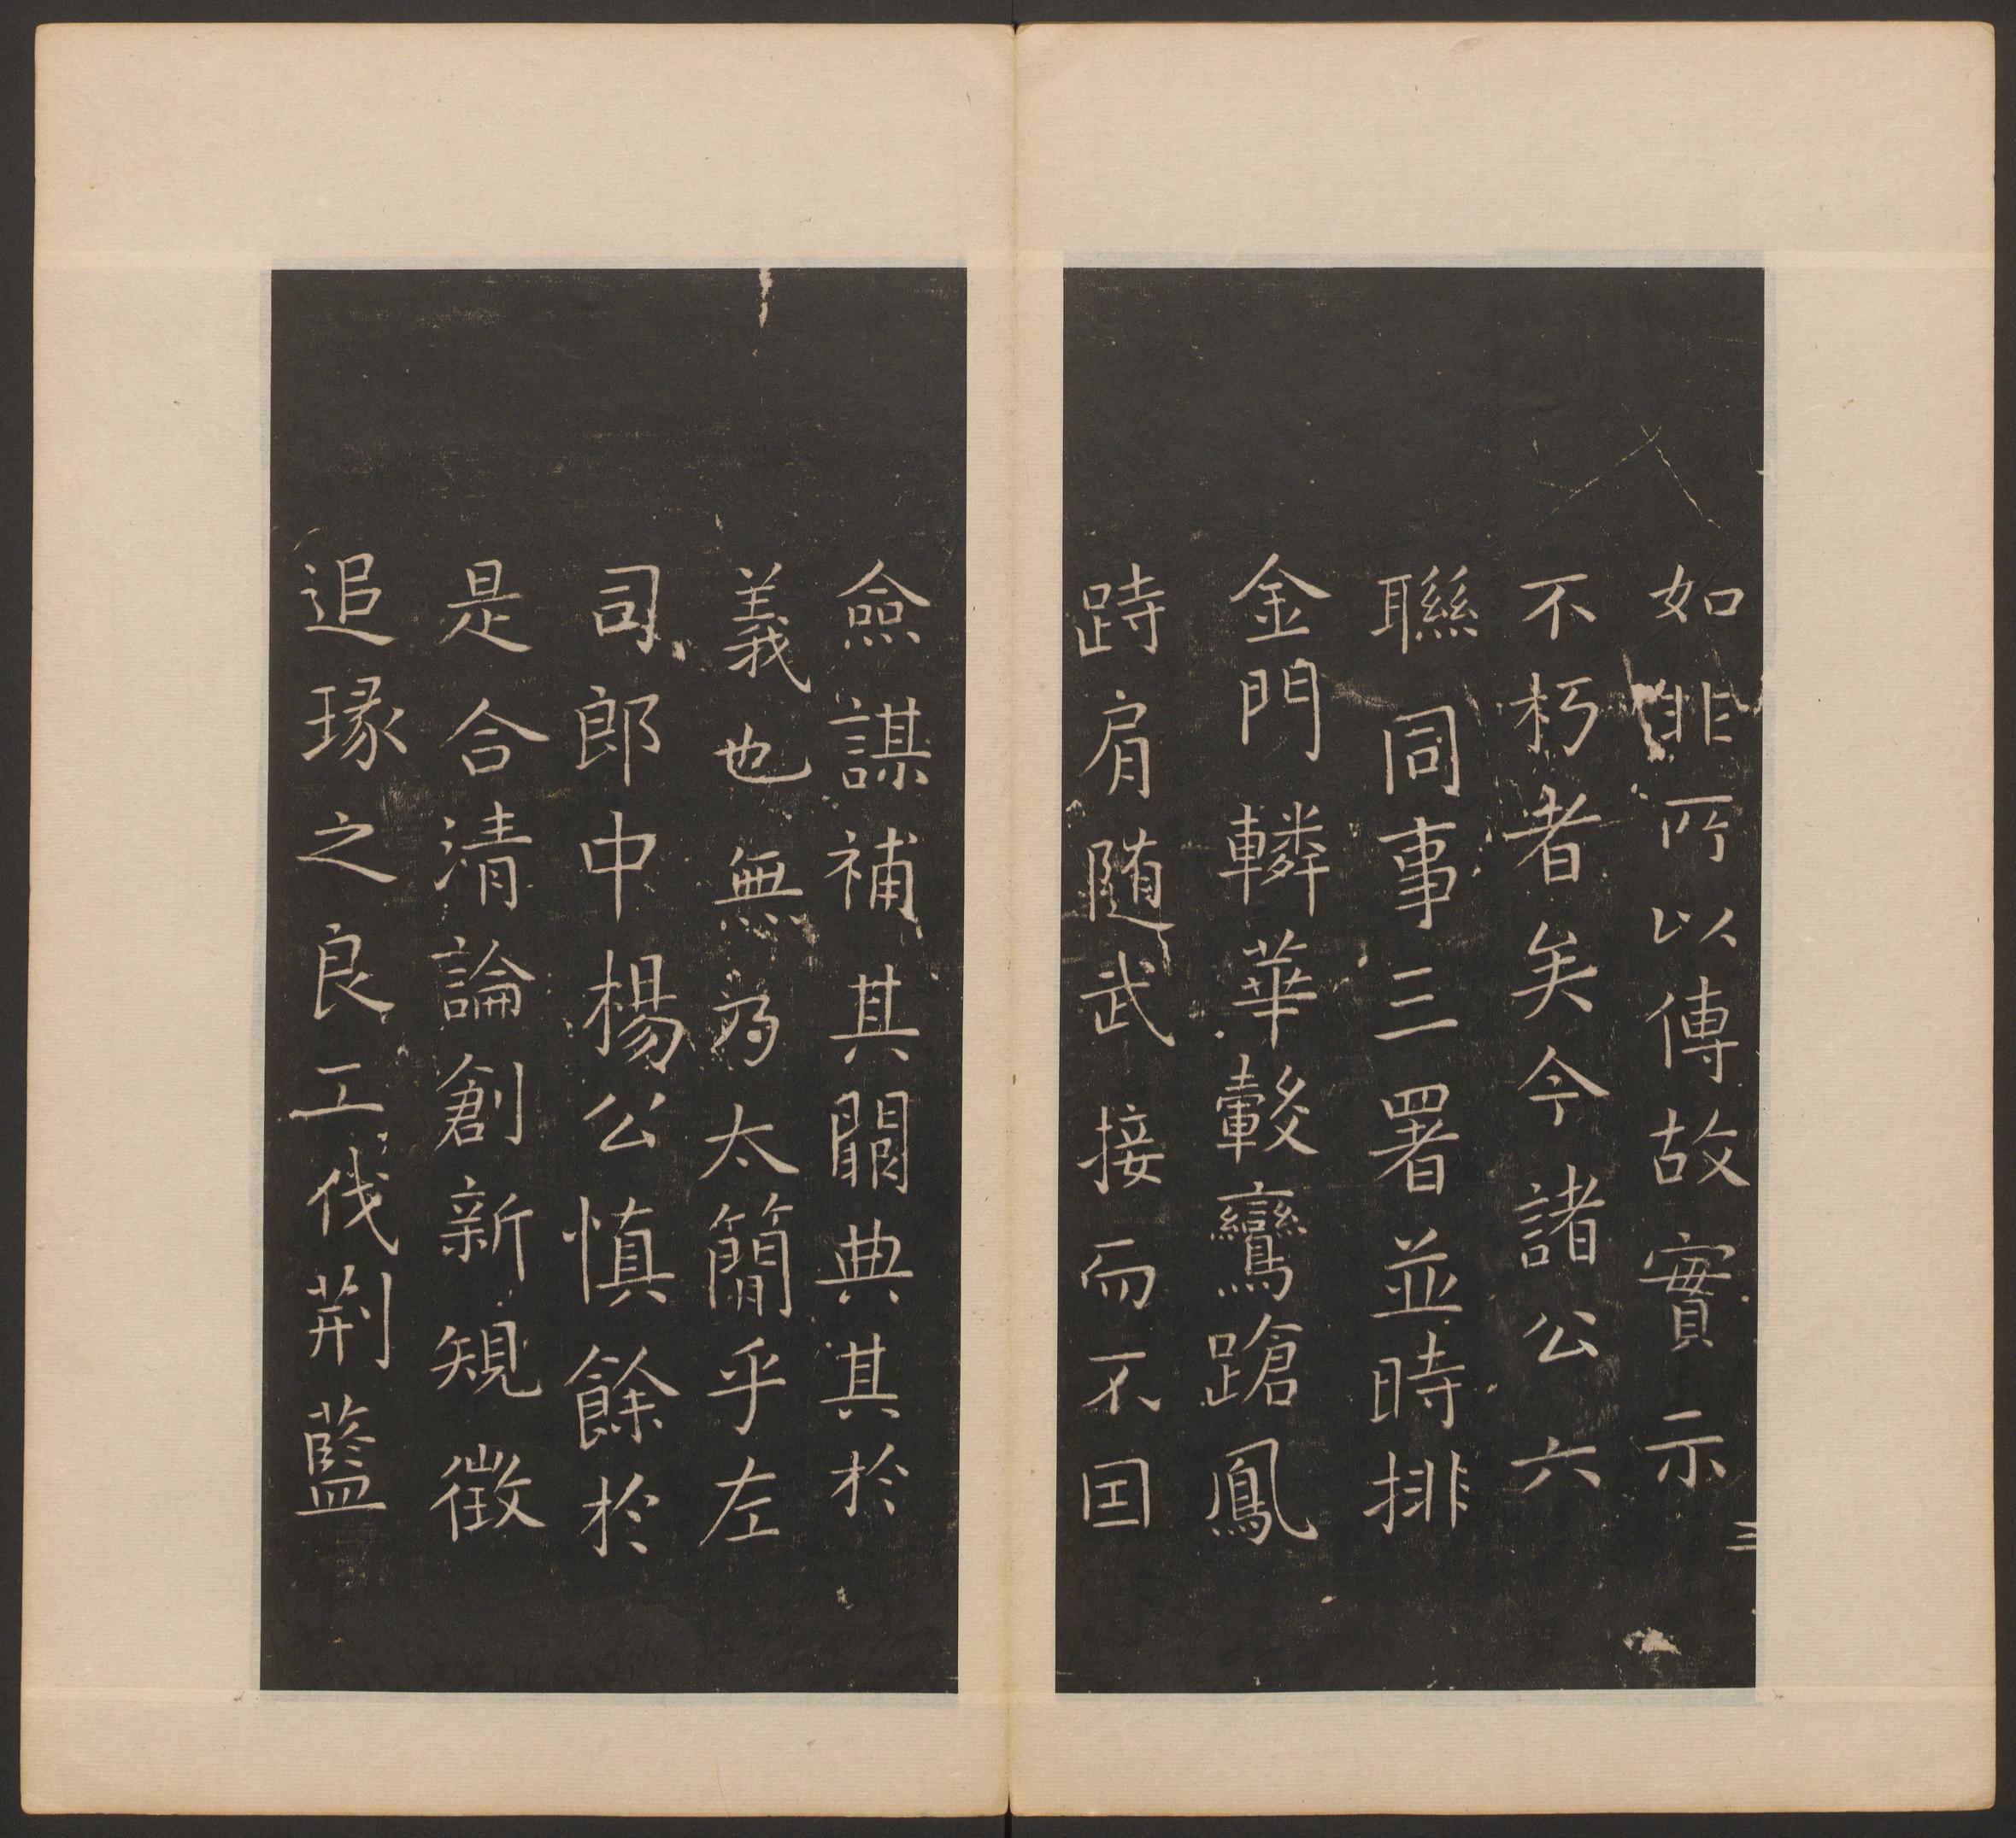 如非所以傳故實示
不朽者矣今諸公六
聯同事三署並時排
金門轔華轂鸞蹌鳳
跱肩隨武接而不囯
僉謀補其闕典其於
義也無乃太簡乎左
司郎中楊公慎餘於
是合清論創新規徵
追琢之良工伐荆藍
三